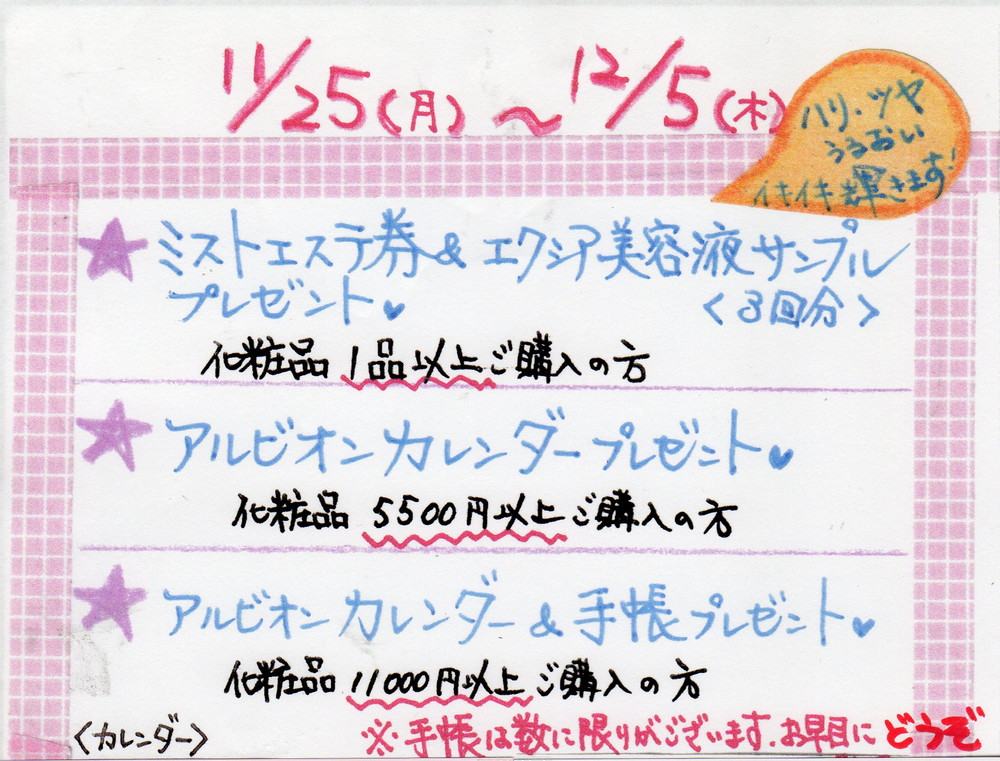 11/25(月)～12/5(木)
ハリ・ツヤ
うるおい
イキイキ輝きます!
★ミストエステ券&エクシア美容液サンプル
プレゼント♥ <3回分>
化粧品1品以上ご購入の方
★アルビオンカレンダープレゼント♥
化粧品 5500円以上ご購入の方
★アルビオンカレンダー&手帳プレゼント♥
化粧品 11000円以上ご購入の方
<カレンダー>
※手帳は数に限りがございます.お早目にどうぞ